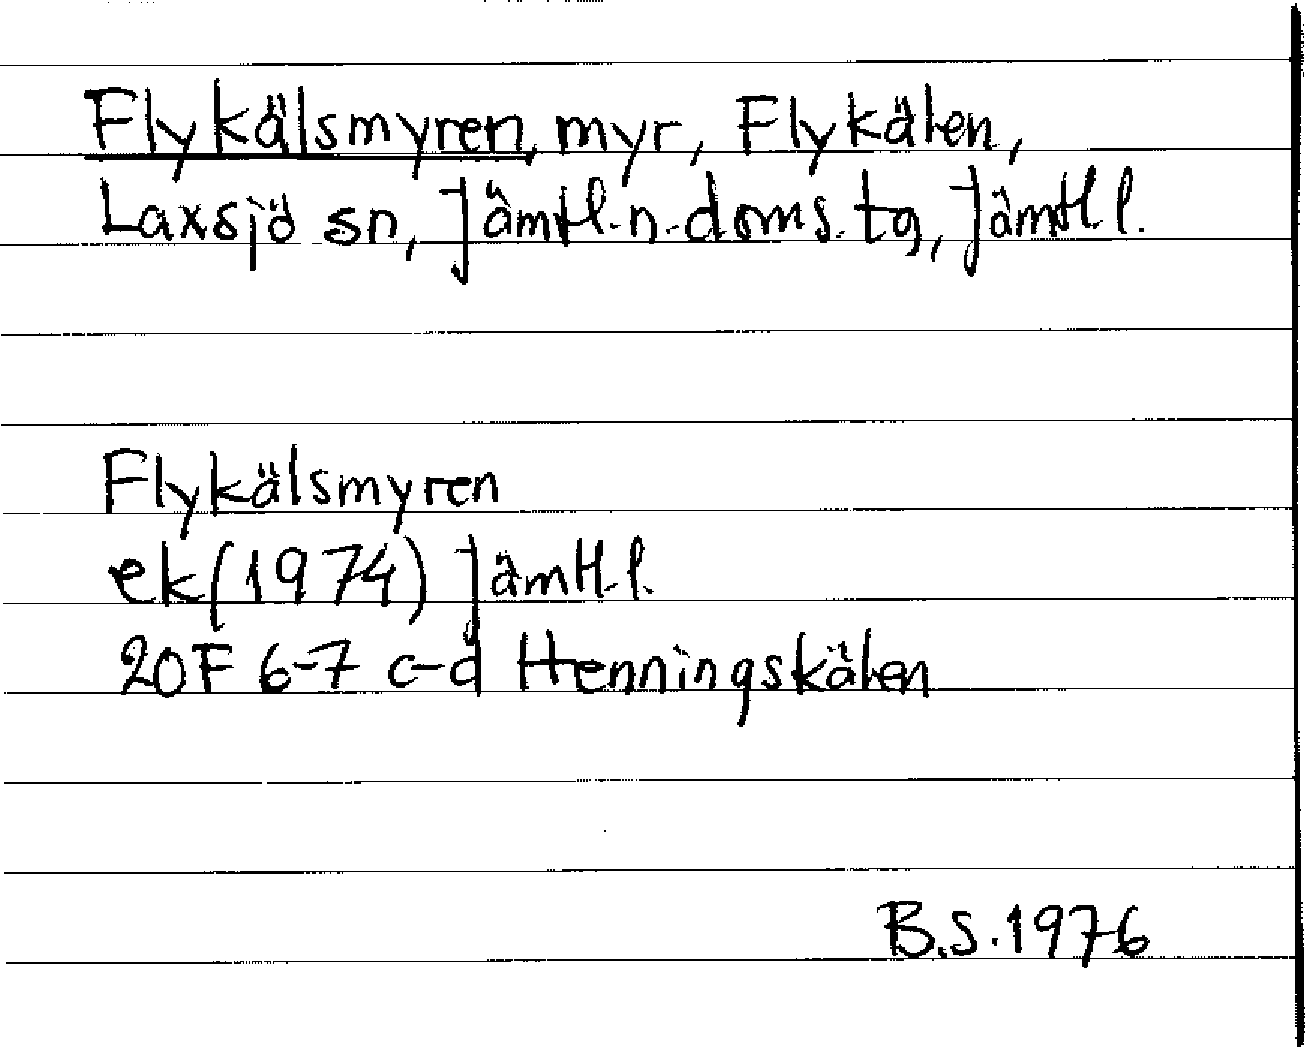 Flykälsmyren, myr, Flykälen,
Laxsjö sn, Jämtl. n. doms. tg, Jämtl l.
Flykälsmyren
ek (1974) Jämtl. l.
20F 6-7 c-d Henningskälen
B.S. 1976